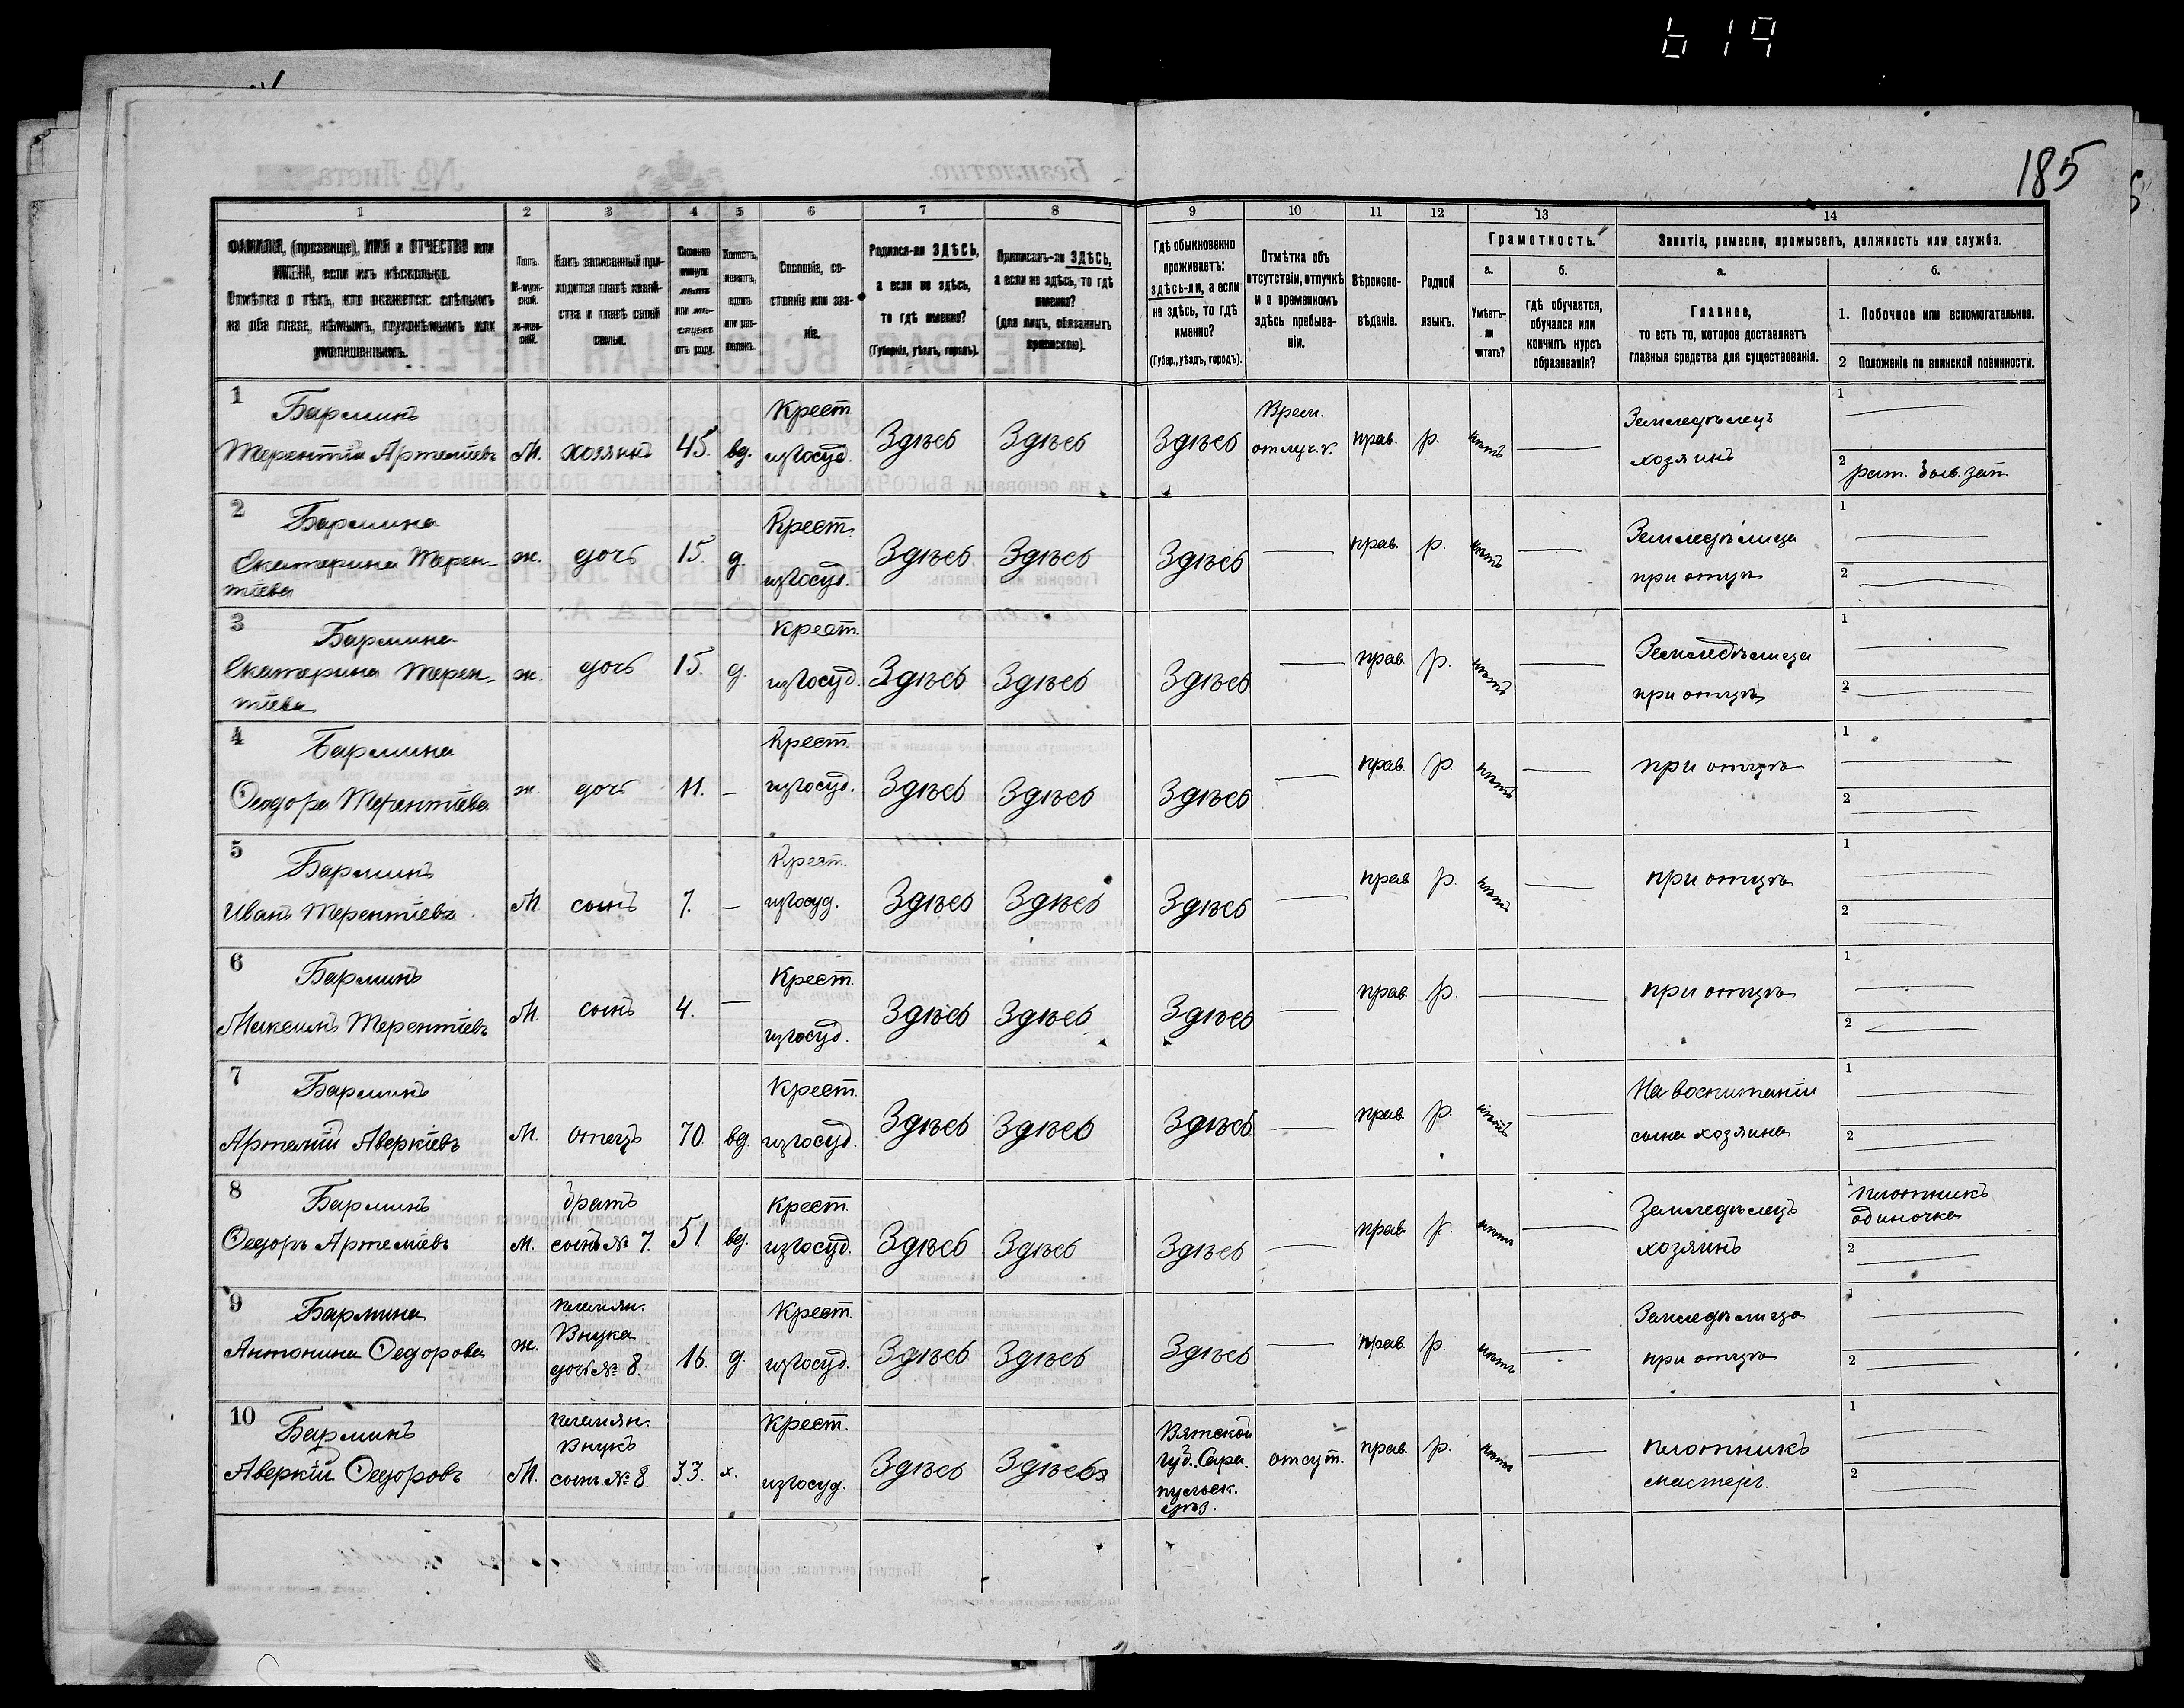 619
185
1 2 3 4 5 6 7 8 9 10 11 12 13 14
ФАМИЛІЯ, (прозвище), ИМЯ и ОТЧЕСТВО или
ИМЕНА, если ихъ нѣсколько.
Отмѣтка о тѣхъ, кто окажется: слѣпымъ
на оба глаза, нѣмымъ, глухонѣмымъ или
умалишеннымъ.
Полъ.
М-муж-
ской.
Ж-жен-
скій.
Какъ записанный при-
ходится главѣ хозяй-
ства и главѣ своей
семьи.
Сколько
минуло
лѣтъ
или мѣ-
сяцевъ
отъ роду.
Холостъ,
женатъ,
вдовъ
или раз-
веденъ.
Сословіе, со-
стояніе или зва-
ніе.
Родился-ли ЗДѢСЬ,
а если не здѣсь,
то гдѣ именно?
(Губернія, уѣздъ, городъ).
Приписанъ-ли ЗДѢСЬ,
а если не здѣсь, то гдѣ
именно?
(для лицъ, обязанныхъ
припискою).
Гдѣ обыкновенно
проживаетъ:
здѣсь-ли, а если
не здѣсь, то гдѣ
именно?
(Губер., уѣздъ, городъ).
Отмѣтка объ
отсутствіи, отлучкѣ
и о временномъ
здѣсь пребыва-
ніи.
Вѣроиспо-
вѣданіе.
Родной
языкъ.
Грамотность.
а.
Умѣетъ-
ли
читать?
б.
гдѣ обучается,
обучался или
кончилъ курсъ
образованія?
Занятіе, ремесло, промыселъ, должность или служба.
а.
Главное,
то есть то, которое доставляетъ
главныя средства для существованія.
б.
1. Побочное или вспомогательное.
2 Положеніе по воинской повинности.
1 Барминъ
Терентій Артеміевъ М. хозяинъ 45. вд. Крест.
изгосуд. Здѣсь Здѣсь Здѣсь Врем.
отлуч. прав. р. нѣтъ — Земледѣлецъ
хозяинъ 1 —
2 рат.
2 Бармина
Екатерина Терен-
тіева ж. дочь 15. д. Крест.
изгосуд. Здѣсь Здѣсь Здѣсь — прав. р. нѣтъ — Земледѣлица
при отцѣ 1 —
2 —
3 Бармина
Екатерина Терен-
тіева ж. дочь 15. д. Крест.
изгосуд. Здѣсь Здѣсь Здѣсь — прав. р. нѣтъ — Земледѣлица
при отцѣ 1 —
2 —
4 Бармина
Ѳеодора Терентіева ж дочь 11. — Крест.
изгосуд. Здѣсь Здѣсь Здѣсь — прав. р. нѣтъ — при отцѣ 1 —
2 —
5 Барминъ
Иванъ Терентіевъ М сынъ 7. — Крест.
изгосуд. Здѣсь Здѣсь Здѣсь — прав р. нѣтъ — при отцѣ 1 —
2 —
6 Барминъ
Максимъ Терентіевъ М. сынъ 4. — Крест.
изгосуд. Здѣсь Здѣсь Здѣсь — прав. р. — при отцѣ 1 —
2 —
7 Барминъ
Артемій Аверкіевъ М. отецъ 70. вд. Крест.
изгосуд. Здѣсь Здѣсь Здѣсь — прав. р. нѣтъ — На воспитаніи
сына хозяина 1 —
2 —
8 Барминъ
Ѳедоръ Артеміевъ м. братъ
сынъ № 7. 51. вд. Крест.
изгосуд. Здѣсь Здѣсь Здѣсь — прав. р. нѣтъ — Земледѣлецъ
хозяинъ 1 плотникъ
одиночка
2 —
9 Бармина
Антонина Ѳедорова ж. племян.
Внука
дочь № 8. 16. д. Крест.
изгосуд. Здѣсь Здѣсь Здѣсь — прав. р. нѣтъ — Земледѣлица
при отцѣ 1 —
2 —
10 Барминъ
Аверкій Ѳедоровъ М. племян.
Внукъ
сынъ № 8 33. х. Крест.
изгосуд. Здѣсь Здѣсь Вятской
губ. Сара-
пульск.
уѣз. отсут. прав. р. нѣтъ — плотникъ
мастеръ. 1 —
2 —